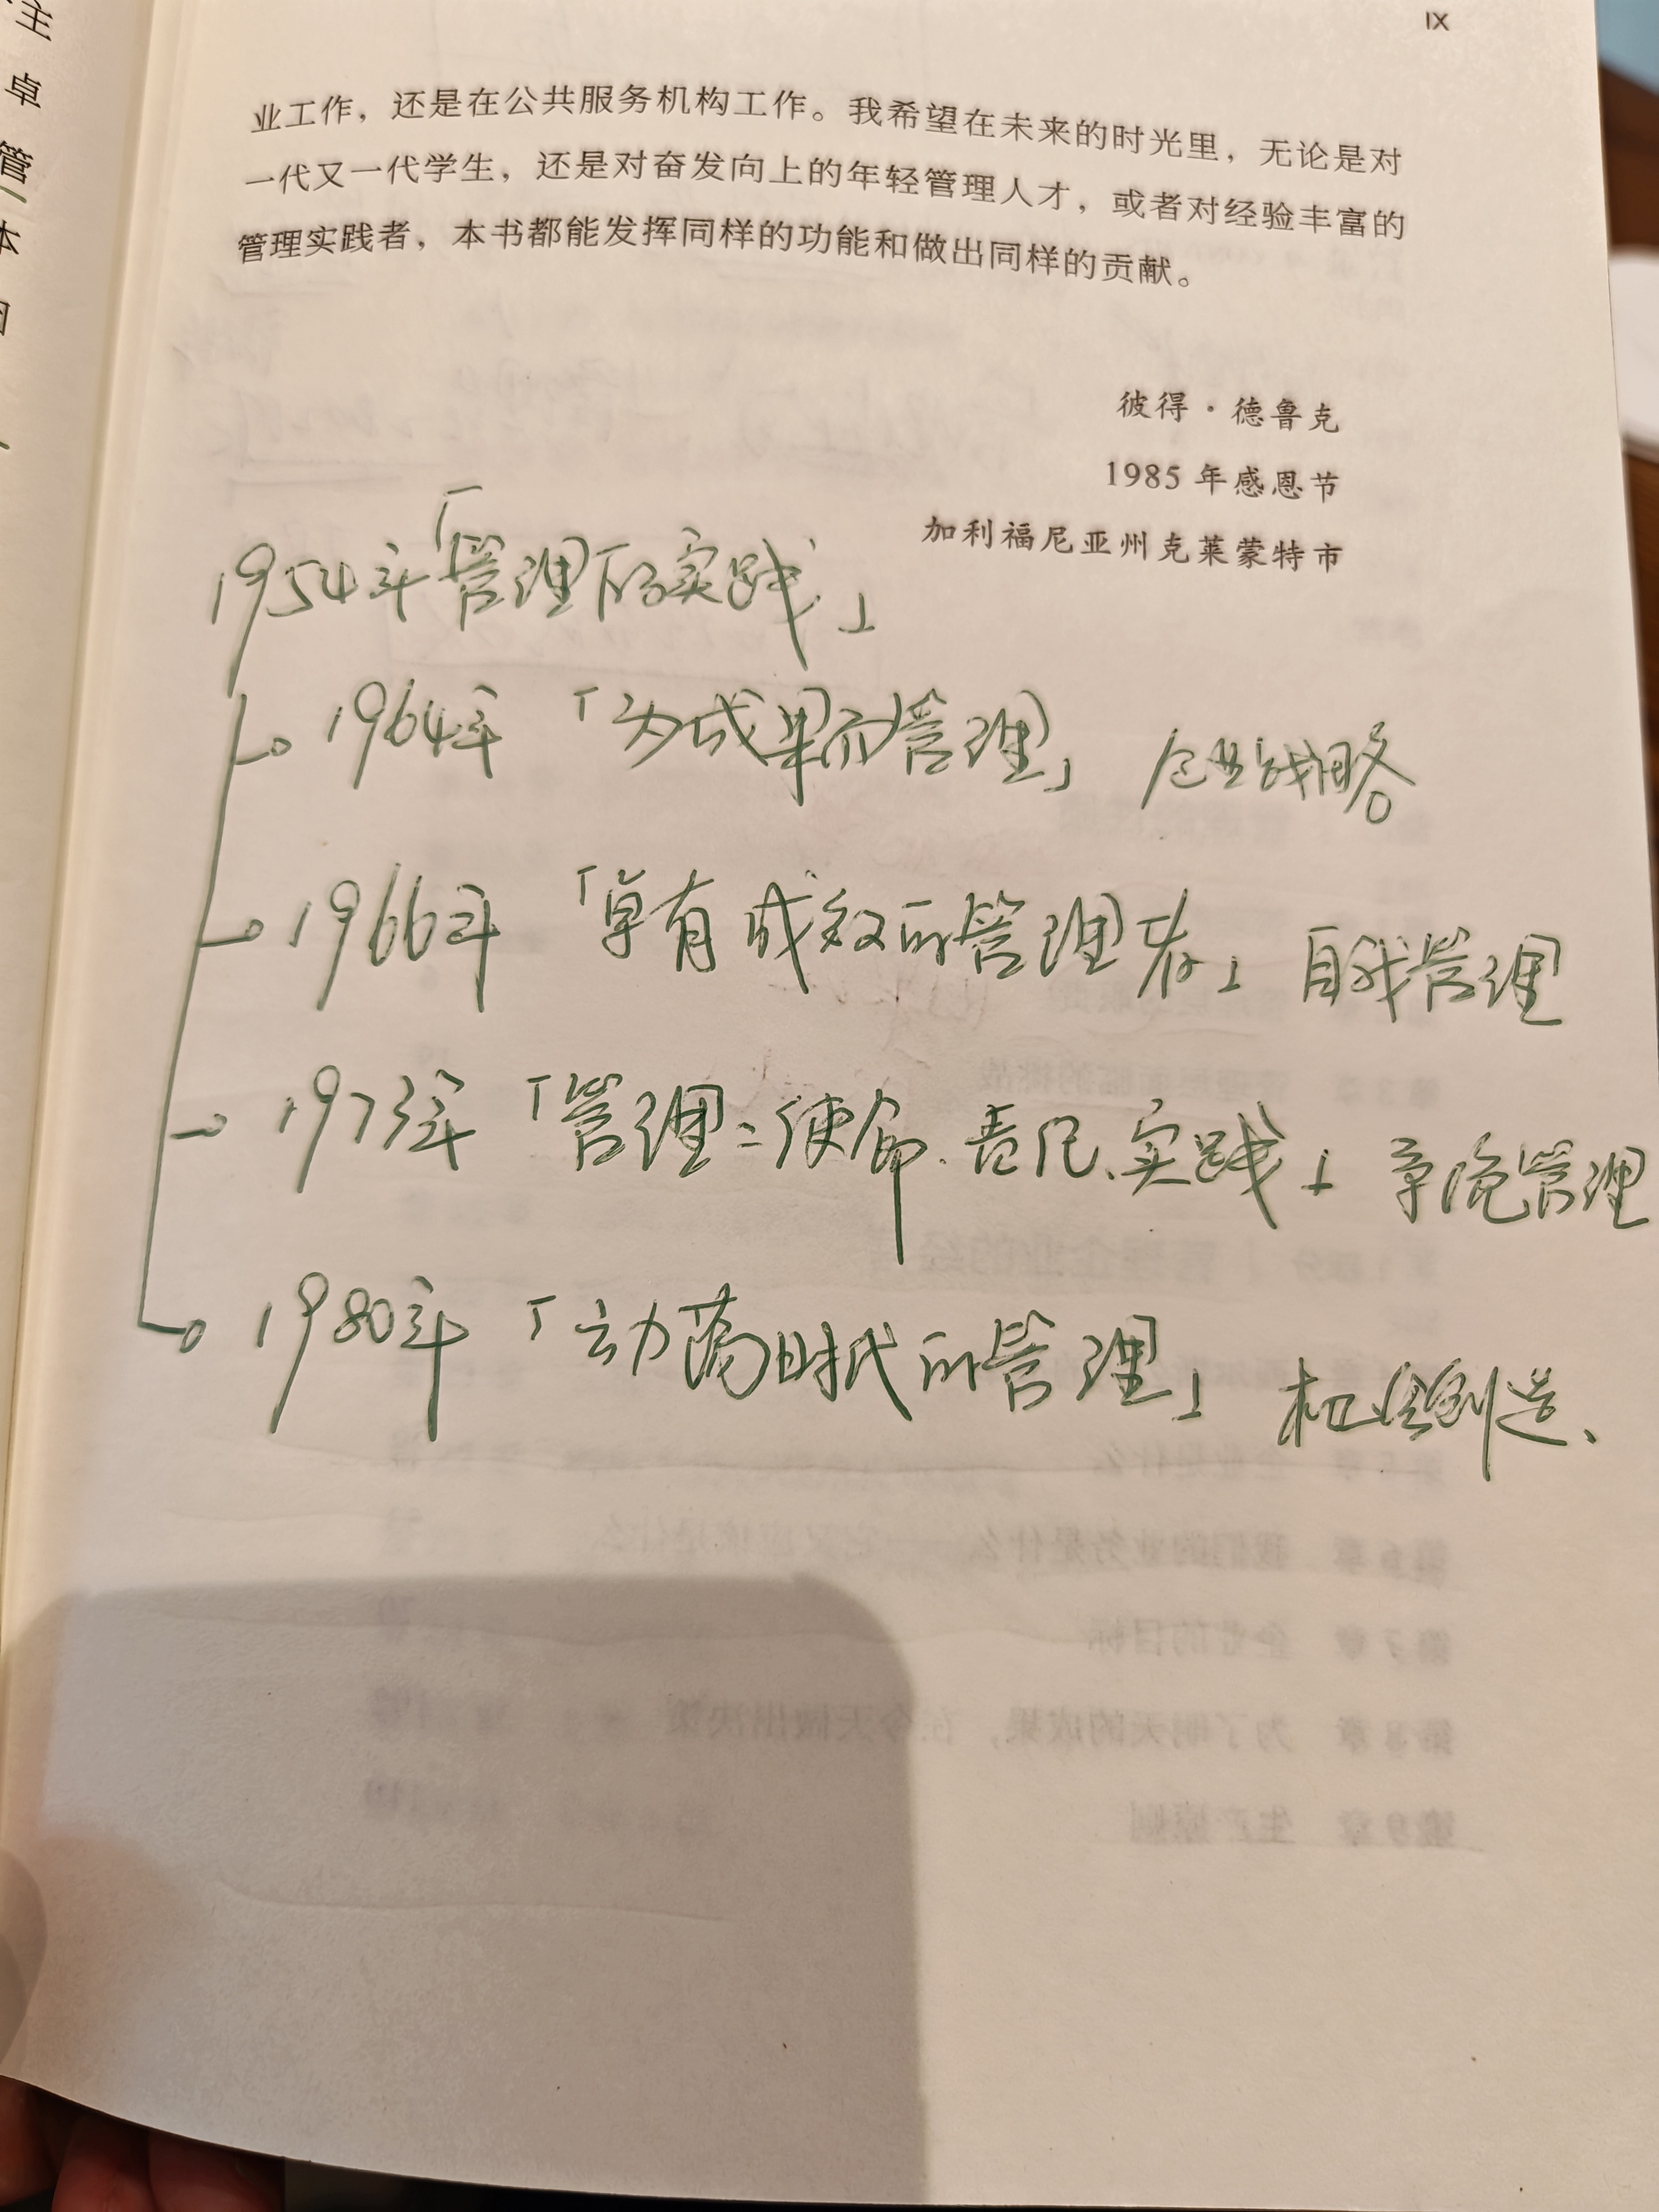 IX
业工作，还是在公共服务机构工作。我希望在未来的时光里，无论是对
一代又一代学生，还是对奋发向上的年轻管理人才，或者对经验丰富的
管理实践者，本书都能发挥同样的功能和做出同样的贡献。
彼得·德鲁克
1985 年感恩节
加利福尼亚州克莱蒙特市
1954年「管理的实践」
1964年「为成果而管理」 企业战略
1966年「卓有成效的管理者」 自我管理
1973年「管理:使命、责任、实践」 管理
1980年「动荡时代的管理」 机会创造、
主
卓
管
本